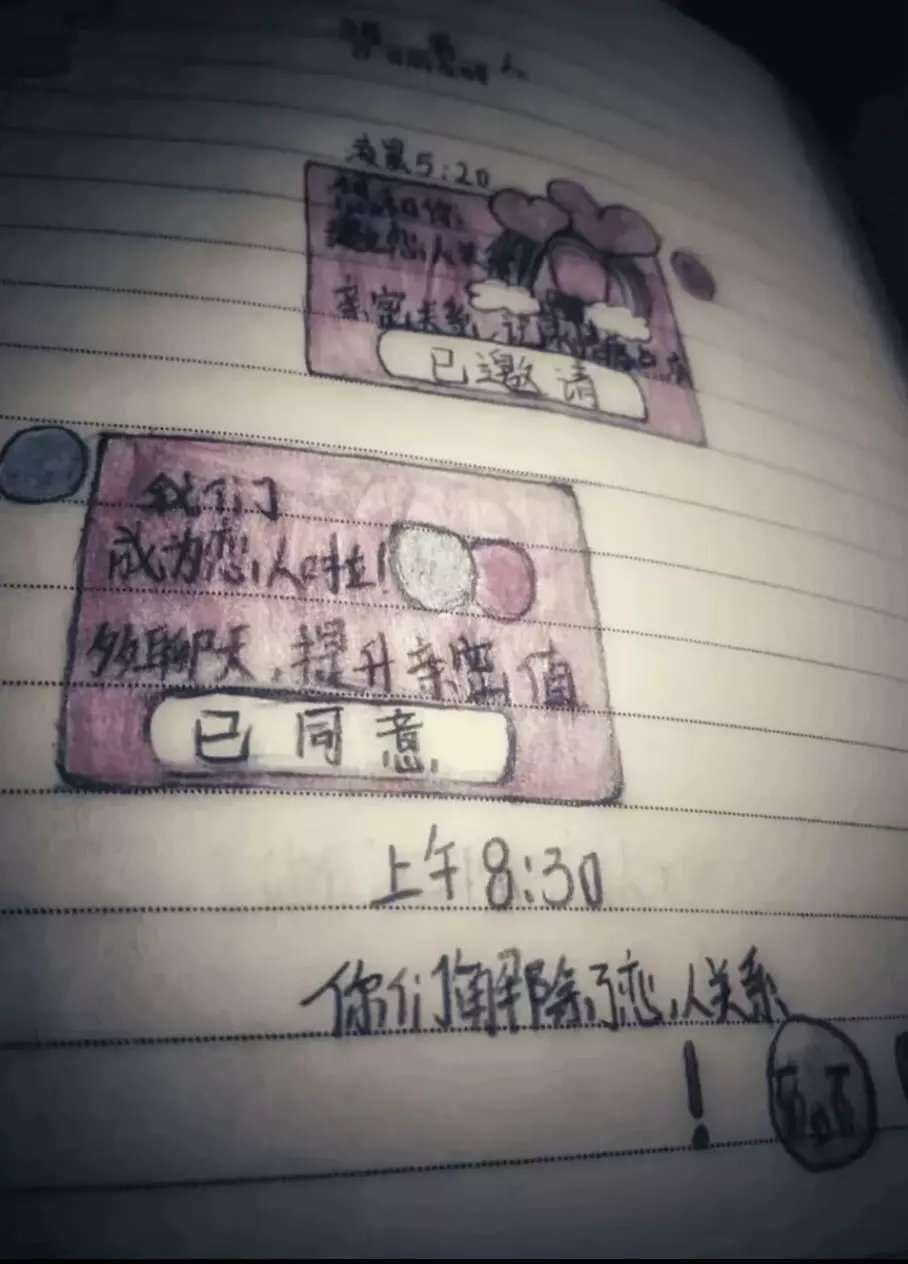 凌晨5:20
想和你
建立恋人关系
已邀请
我们
成为恋人啦!
多聊天,提升亲密值
已同意
上午8:30
你们解除了恋人关系
!